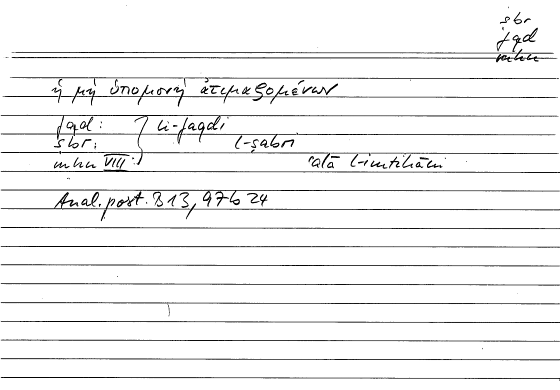 ṣbr
fqd
mhn
ἡ μὴ ὑπομονὴ ἀτιμαζομένων
fqd:
ṣbr: li-faqdi l-ṣabri
mhn VIII: ʿalā l-imtihāni
Anal. post. B 13, 97b 24